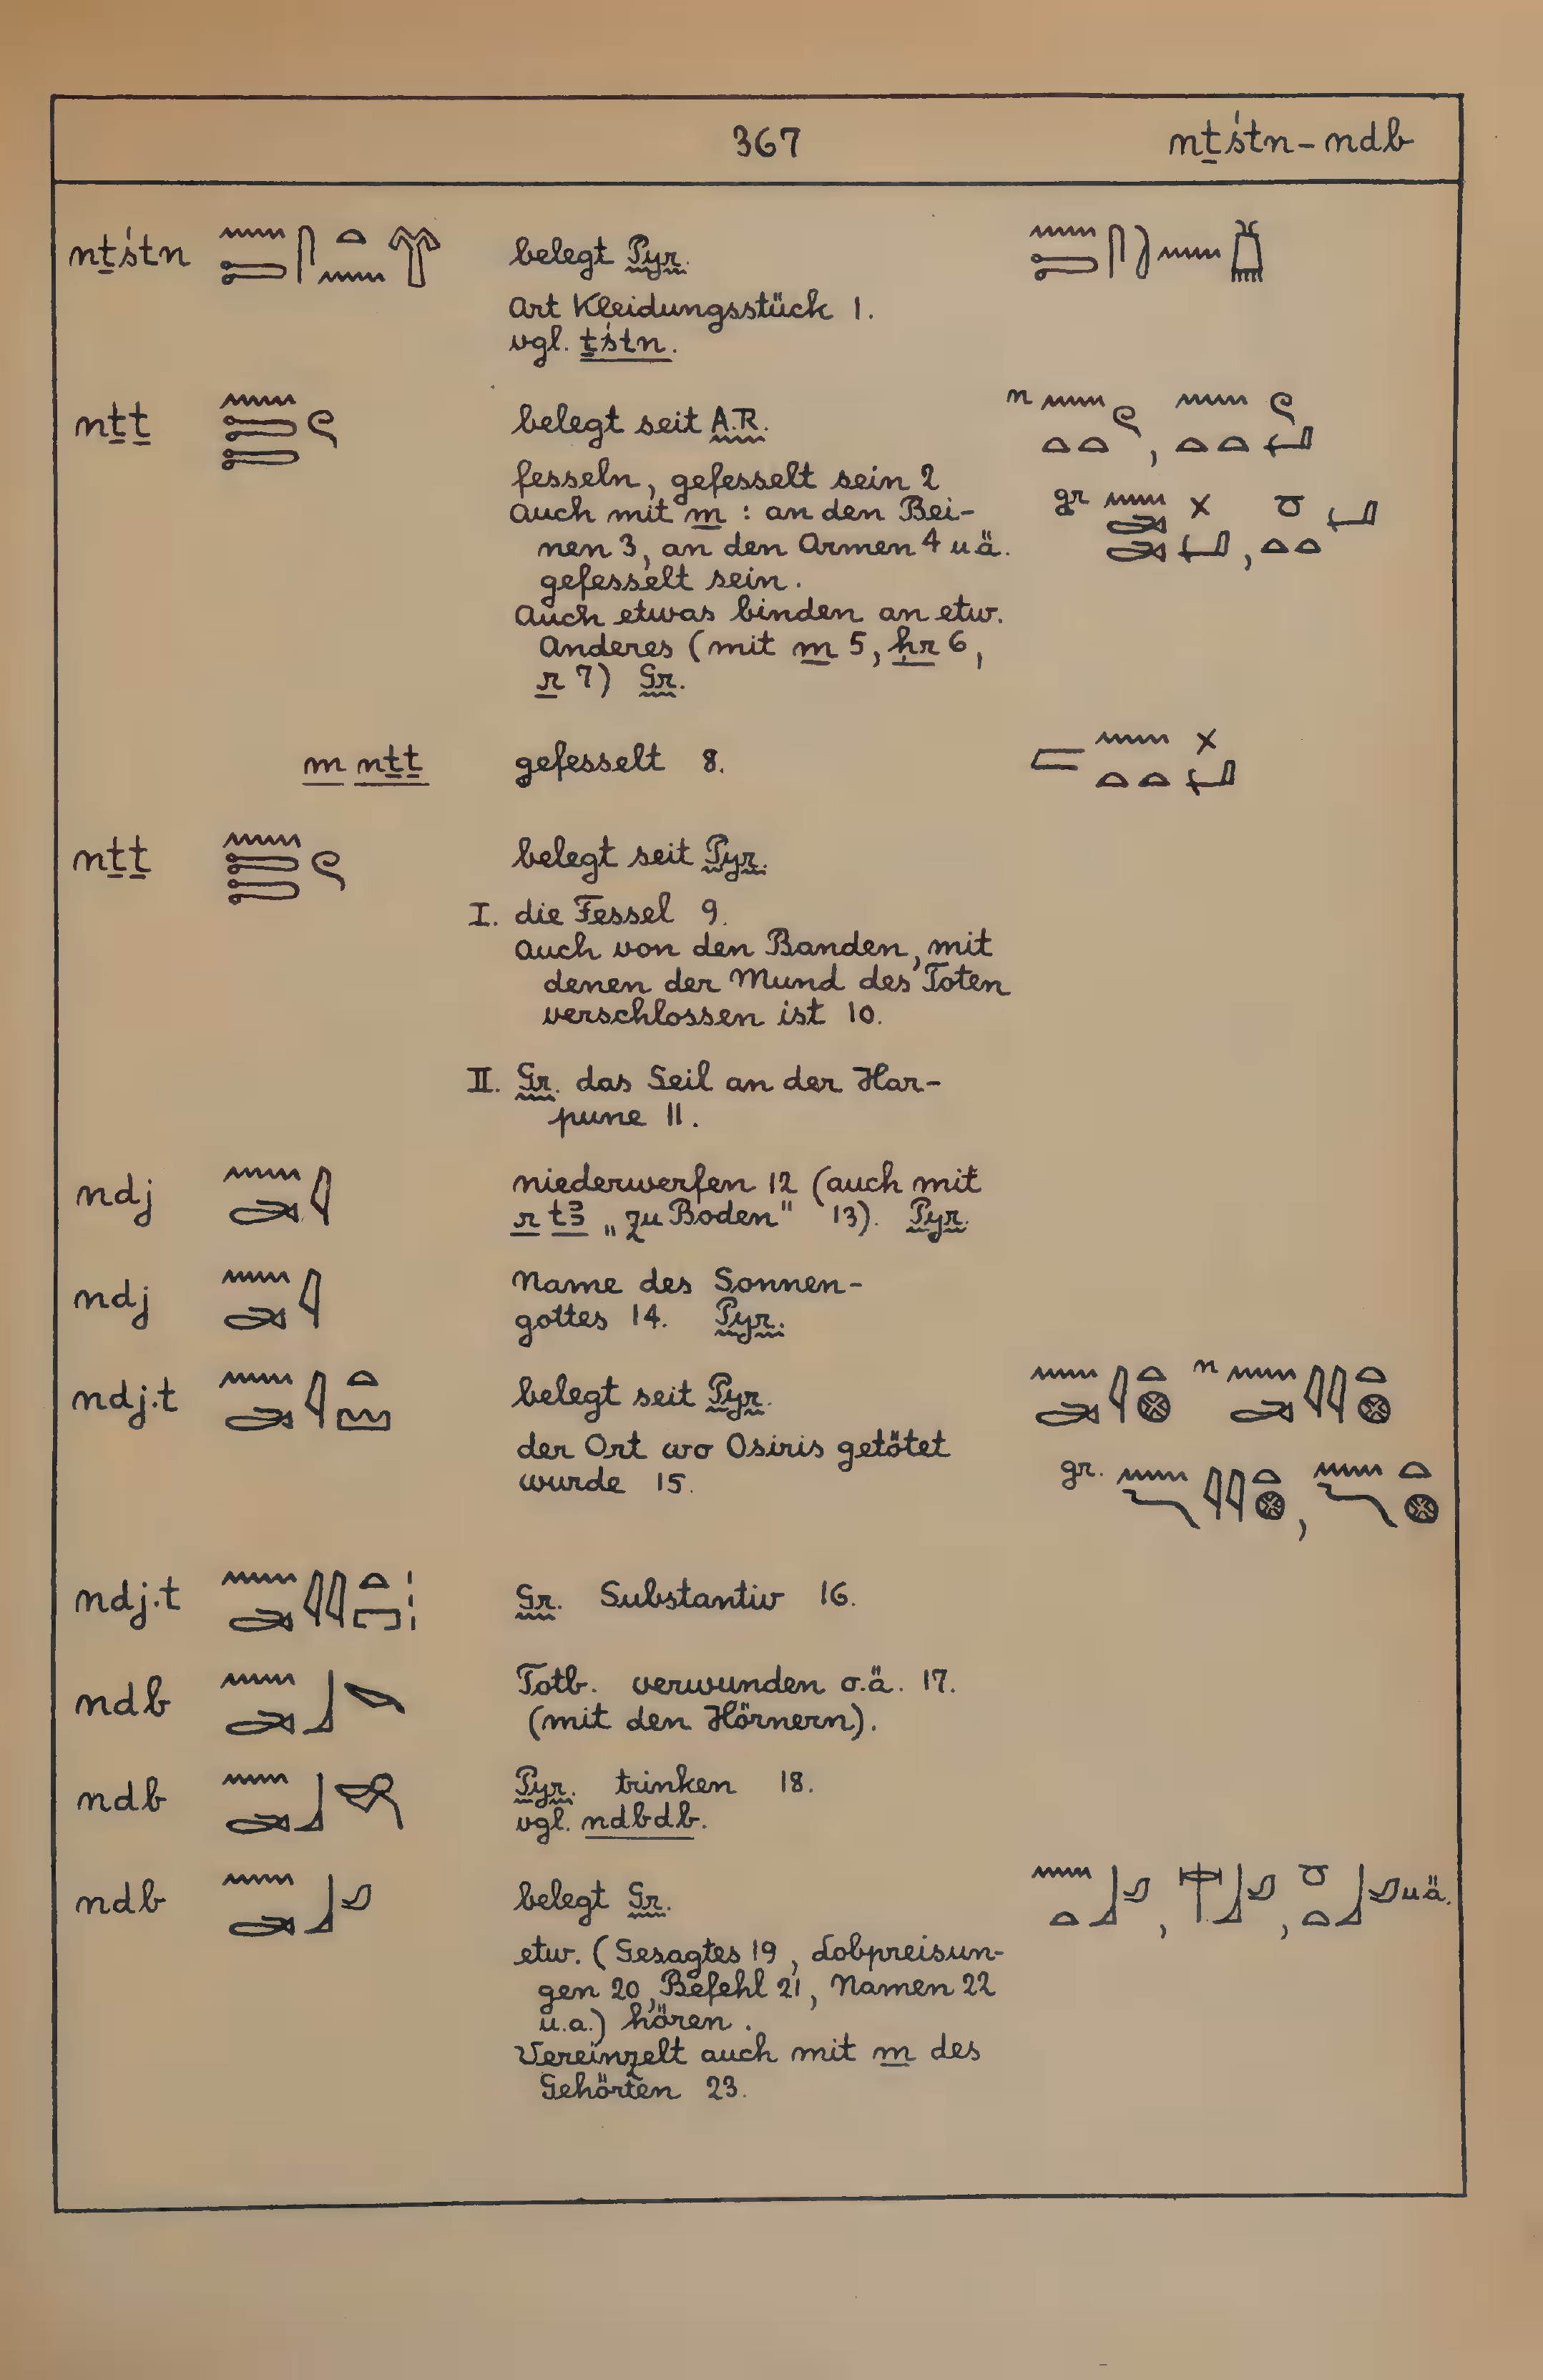 367 nṯśtn - ndb
nṯśtn belegt Pyr.
Art Kleidungsstück 1.
vgl. ṯśtn.
nṯṯ belegt seit A.R. n
fesseln, gefesselt sein 2
auch mit m : an den Bei- gr
nen 3, an den Armen 4 uä.
gefesselt sein.
Auch etwas binden an etw.
Anderes (mit m 5, ḥr 6,
r 7) Gr.
m nṯṯ gefesselt 8.
nṯṯ belegt seit Pyr.
I. die Fessel 9.
auch von den Banden, mit
denen der Mund des Toten
verschlossen ist 10.
II. Gr. das Seil an der Har-
pune 11.
ndj niederwerfen 12 (auch mit
r tꜣ „zu Boden" 13). Pyr.
ndj Name des Sonnen-
gottes 14. Pyr.
ndj.t belegt seit Pyr. n
der Ort wo Osiris getötet
wurde 15. gr.
ndj.t Gr. Substantiv 16.
ndb Totb. verwunden o.ä. 17.
(mit den Hörnern).
ndb Pyr. trinken 18.
vgl. ndbdb.
ndb belegt Gr. , , uä.
etw. (Gesagtes 19, Lobpreisun-
gen 20, Befehl 21, Namen 22
u.a.) hören.
Vereinzelt auch mit m des
Gehörten 23.